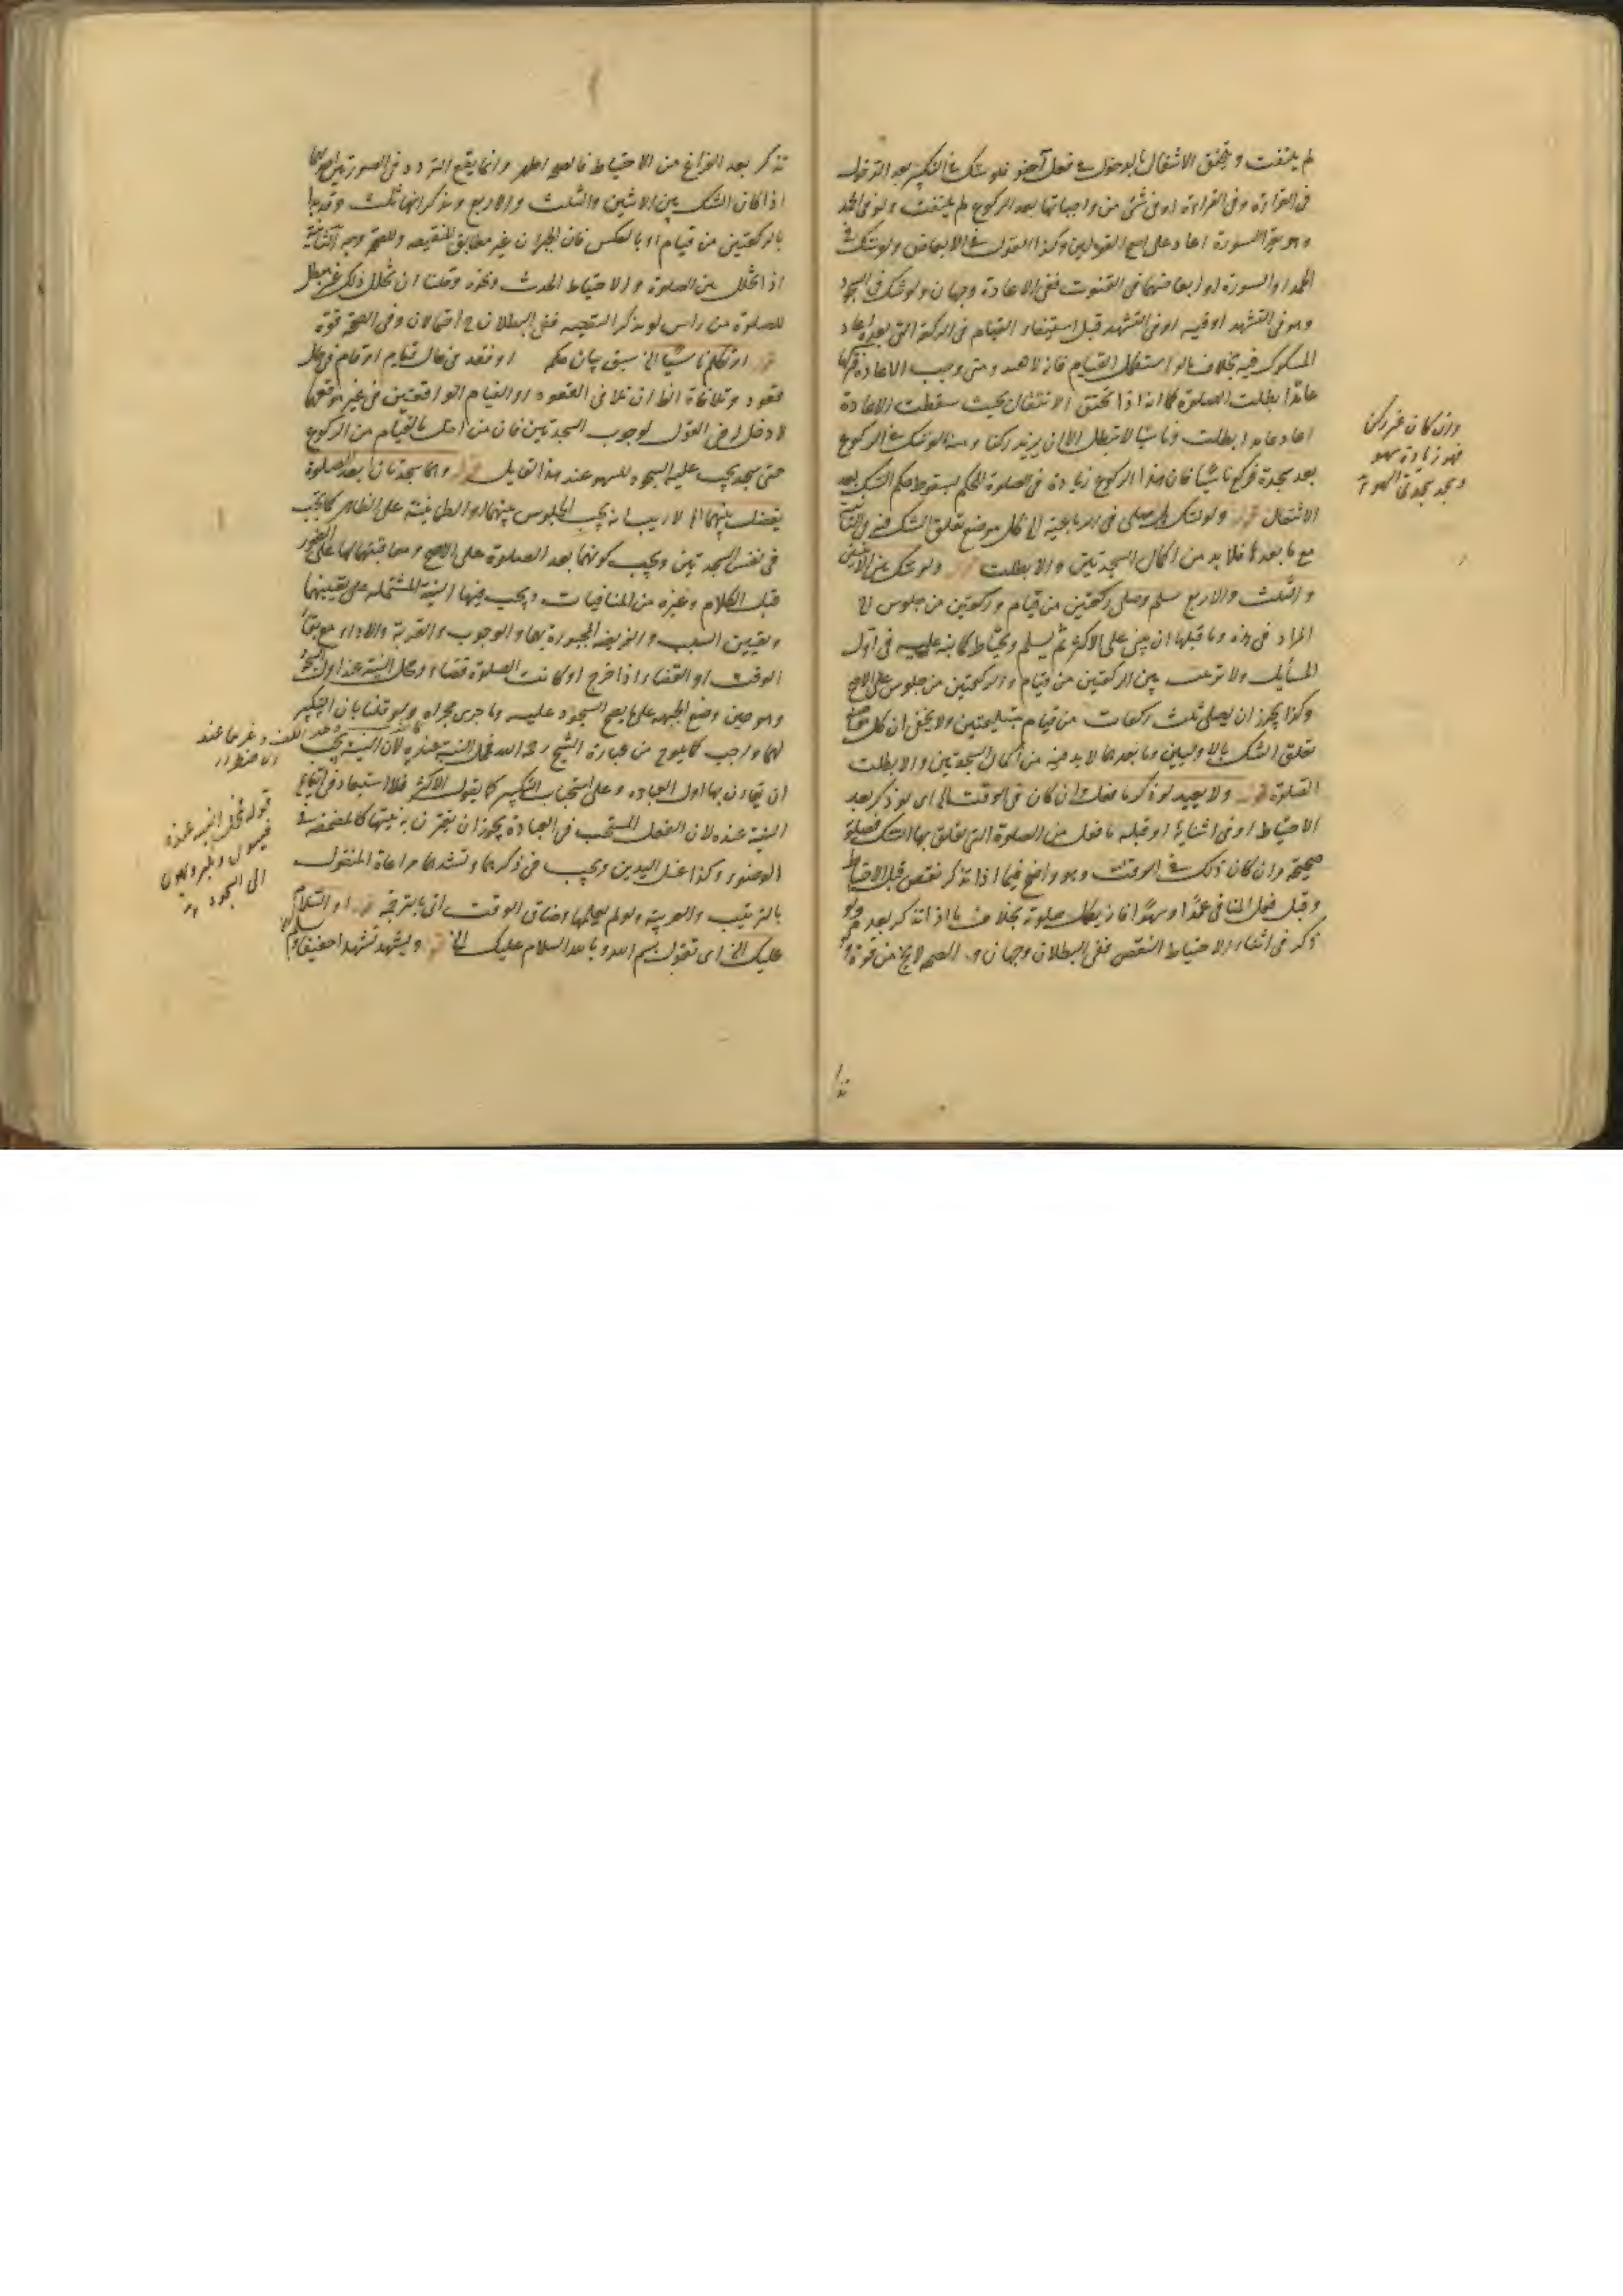 لم يلتفت ويتحقق الاشتغال بالدخول في فعل آخر فلو شك في التكبير بعد الدخول
في القراءة وفي القراءة او في شئ من واجباتها بعد الركوع لم يلتفت ولو في الحمد
وهو في السورة اعاد على اصح القولين وكذا القول في الابعاض ولو شك في
الحمد او السورة او ابعاضهما في القنوت ففي الاعادة وجهان ولو شك في السجود
وهو في التشهد او فيه او في التشهد قبل استيفاء القيام في الركعة التي بعده اعاد
المشكوك فيه بخلاف ما لو استكمل القيام فانه لا يعيد ومتى وجب الاعادة فتركها
عامدا بطلت الصلوة كما انه اذا تحقق الانتقال بحيث سقطت الاعادة
اعاد عامدا بطلت وناسيا لا تبطل الا ان يزيد ركنا ومنه ما لو شك في الركوع
بعد سجدة فركع ناسيا فان هذا الركوع زيادة في الصلوة للحكم بسقوط حكم الشك بعد
الانتقال ولو شك هل صلى في الرباعية الخ كل موضع تعلق الشك فيه
مع ما بعدها فلا بد من اكمال السجدتين والا بطلت ولو شك بين الاثنتين
والثلث والاربع سلم وصلى ركعتين من قيام وركعتين من جلوس الخ
المراد في هذه وما قبلها ان يبني على الاكثر ثم يسلم ويحتاط كما نبه عليه في اول
المسايل ولا ترتيب بين الركعتين من قيام والركعتين من جلوس على الاصح
وكذا يجوز ان يصلي ثلث ركعات من قيام بتسليمتين ولا يخفى ان كل موضع
تعلق الشك بالاوليين وما بعدهما لا بد فيه من اكمال السجدتين والا بطلت
الصلوة ولا يعيد لو ذكر ما فعل وان كان في الوقت الخ اي لو ذكر بعد
الاحتياط او في اثنائه او قبله ما فعل من الصلوة التي تعلق بها الشك فصلوته
صحيحة وان كان ذلك في الوقت وهو واضح فيما اذا تذكر نقص قبل الاحتياط
وقبل فعل المنافي عمدا وسهوا فانه يكمل صلوته بخلاف ما اذا تذكر بعده ولو
ذكر في اثناء الاحتياط النقص ففي البطلان وجهان و الصحة لا يخ من قوة
وان كان غير ركن
فهو زيادة سهو
ويجد سجدتي السهو
تذكر بعد الفراغ من الاحتياط فالصحة اظهر وانما يقع التردد في الصورتين
اذا كان الشك بين الاثنين والثلث والاربع وتذكر انها ثلث وقد بدا
بالركعتين من قيام او بالعكس فان الجبران غير مطابق للنقيصة وللصحة وجه
اذا تخلل بين الصلوة والاحتياط الحدث ونحوه وقلنا ان تخلل ذلك غير مبطل
للصلوة من راس لو تذكر النتيجة ففي البطلان ح احتمالان وفي الصحة قوة
او تكلم ناسيا الخ سبق بيان حكمه او قعد في حال قيام او قام في حال
قعود وتلافاه الظاهر ان تلافي القعود او القيام الواقعين في غير موقعهما
لا دخل له في القول بوجوب السجدتين فان من اخل بالقيام من الركوع
حتى سجد يجب عليه السجود للسهو عند هذا القايل وهما سجدتان بعد الصلوة
يفصل بينهما الخ لا ريب انه يجب الجلوس بينهما والطمانينة على الظاهر كما يجب
في نفس السجدتين ويجب كونهما بعد الصلوة على الاصح ومعاقبتهما لها على الفور
قبل الكلام وغيره من المنافيات ويجب فيهما النية المشتملة على تعيينهما
وتعيين السبب والفريضة المجبورة بهما والوجوب والقربة والاداء مع بقاء
الوقت او القضاء اذا خرج او كانت الصلوة قضاء ومحل النية عند اول السجود
وهو حين وضع الجبهة على ما يصح السجود عليه وما جرى مجراه ولو قلنا بان التكبير
لهما واجب كما يلوح من عبارة الشيخ رحمه الله فمحل النية عنده لان النية يجب
ان تقارن بها اول العبادة وعلى استحباب التكبير كما يقول الاكثر فلا استبعاد في ايقاع
النية عنده لان الفعل المستحب في العبادة يجوز ان يقترن به نيتها كالمضمضة في
الوضوء وكذا غسل اليدين ويجب في ذكرهما وتشهدهما مراعاة المنقول
بالترتيب والعربية ولو لم يعلمها وضاق الوقت اتى بالترجمة او السلام
عليك الخ اي تقول بسم الله وبالله السلام عليك الخ ويشهد تشهدا خفيفا
قوله فمحل النية عنده
الى السجود